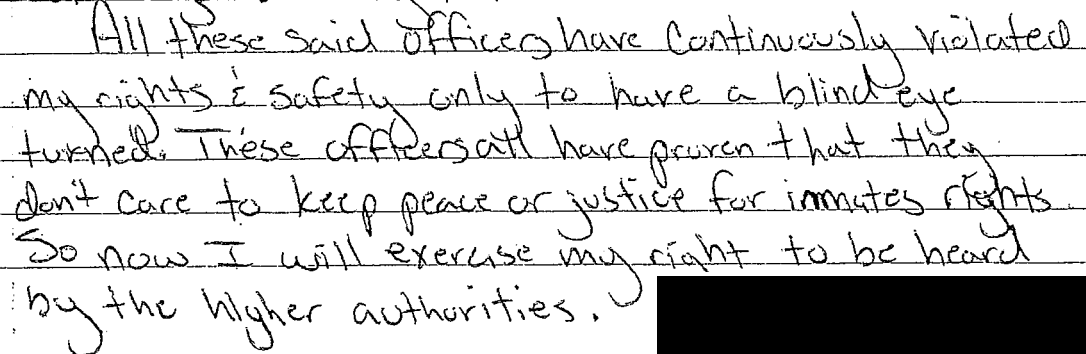 All these said officers have continuously violated
my rights & safety only to have a blind eye
turned. These officers all have proven that they
don't care to keep peace or justice for inmates rights.
So now I will exercise my right to be heard
by the higher authorities.